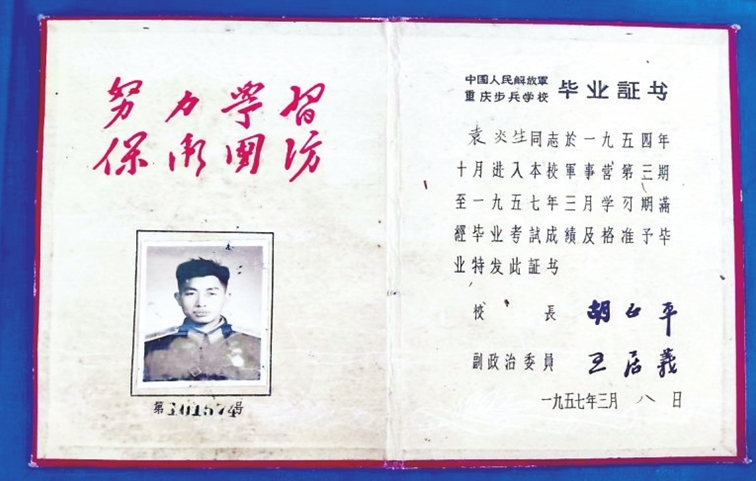 努力学習
保衛国防
第101574号
中国人民解放軍
重庆步兵学校 毕业証书
袁炎生同志於一九五四年
十月进入本校軍事营第三期
至一九五七年三月学习期滿
經毕业考試成績及格准予毕
业特发此証书
校 長 胡正平
副政治委員 王居義
一九五七年三月八日